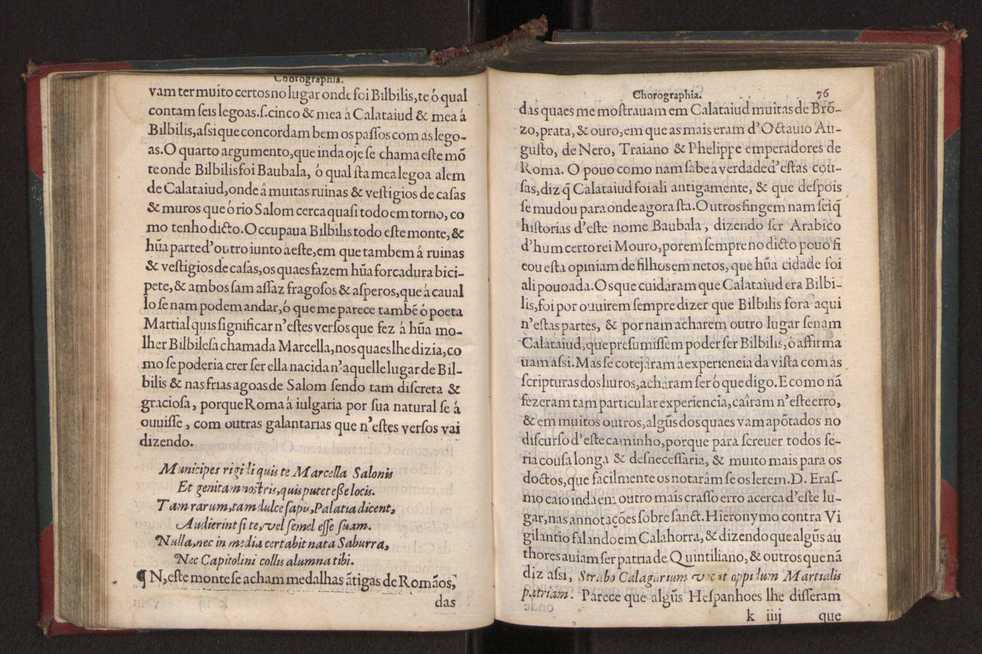 Chorographia.
vam ter muito certos no lugar onde foi Bilbilis, te ó qual
contam seis legoas.s.cinco & mea á Calataiud & mea á
Bilbilis, assi que concordam bem os passos com as lego-
as. O quarto argumento, que inda oje se chama este mõ
te onde Bilbilis foi Baubala, ó qual sta mea legoa alem
de Calataiud, onde á muitas ruinas & vestigios de casas
& muros que ó rio Salom cerca quasi todo em torno, co
mo tenho dicto. Occupaua Bilbilis todo este monte, &
hũa parte d'outro iunto à este, em que tambem á ruinas
& vestigios de casas, os quaes fazem hũa forcadura bici-
pete, & ambos sam assaz fragosos & asperos, que à caual
lo se nam podem andar, ó que me parece també ó poeta
Martial quis significar n'estes versos que fez á hũa mo-
lher Bilbilesa chamada Marcella, nos quaes lhe dizia, co
mo se poderia crer ser ella nacida n'aquelle lugar de Bil-
bilis & nas frias agoas de Salom sendo tam discreta &
graciosa, porque Roma á iulgaria por sua natural se á
ouuisse, com outras galantarias que n'estes versos vai
dizendo.
Municipes rigidi quis te Marcella Salonis
Et genitam nostris, quis putet esse locis.
Tam rarum, tam dulce sapis, Palatia dicent,
Audierint si te, vel semel esse suam.
Nulla, nec in media certabit nata Saburra,
Nec Capitolini collis alumna tibi.
¶ N, este monte se acham medalhas ãtigas de Romãos,
das
Chorographia. 76
das quaes me mostrauam em Calataiud muitas de Brõ-
zo, prata, & ouro, em que as mais eram d'Octauio Au-
gusto, de Nero, Traiano & Phelippe emperadores de
Roma. O pouo como nam sabe a verdade d'estas cou-
sas, diz q̃ Calataiud foi ali antigamente, & que despois
se mudou para onde agora sta. Outros fingem nam sei q̃
historias d'este nome Baubala, dizendo ser Arabico
d'hum certo rei Mouro, porem sempre no dicto pouo fi
cou esta opiniam de filhos em netos, que hũa cidade foi
ali pouoada. Os que cuidaram que Calataiud era Bilbi-
lis, foi por ouuirem sempre dizer que Bilbilis fora aqui
n'estas partes, & por nam acharem outro lugar senam
Calataiud, que presumissem poder ser Bilbilis, ó affirma
uam assi. Mas se cotejaràm à experiencia da vista com as
scripturas dos liuros, acharam ser ó que digo. E como nã
fezeram tam particular experiencia, cairam n'este erro,
& em muitos outros, algũs dos quaes vam apõtados no
discurso d'este caminho, porque para screuer todos se-
ria cousa longa & desnecessaria, & muito mais para os
doctos, que facilmente os notaràm se os lerem. D. Eras-
mo caio inda em outro mais crasso erro acerca d'este lu-
gar, nas annotações sobre sanct. Hieronymo contra Vi
gilantio falando em Calahorra, & dizendo que algũs au
thores auiam ser patria de Quintiliano, & outros que nã
diz assi, Strabo Calagurium vocat oppidum Martialis
patriam. Parece que algũs Hespanhoes lhe disseram
k iiij que